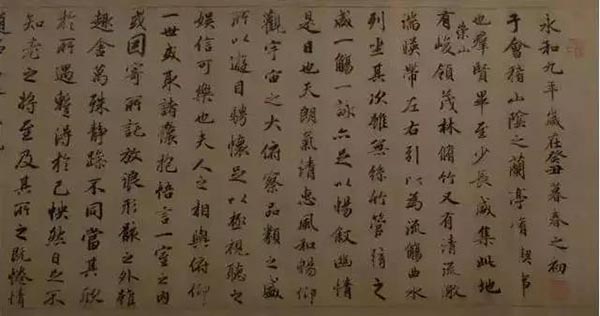 永和九年歲在癸丑暮春之初
于會稽山陰之蘭亭脩禊事
也羣賢畢至少長咸集此地
有崇山峻領茂林脩竹又有清流激
湍暎帶左右引以為流觴曲水
列坐其次雖無絲竹管弦之
盛一觴一詠亦足以暢敘幽情
是日也天朗氣清惠風和暢仰
觀宇宙之大俯察品類之盛
所以遊目騁懷足以極視聽之
娛信可樂也夫人之相與俯仰
一世或取諸懷抱悟言一室之內
或因寄所託放浪形骸之外雖
趣舍萬殊靜躁不同當其欣
於所遇暫得於己怏然自足不
知老之將至及其所之既惓情